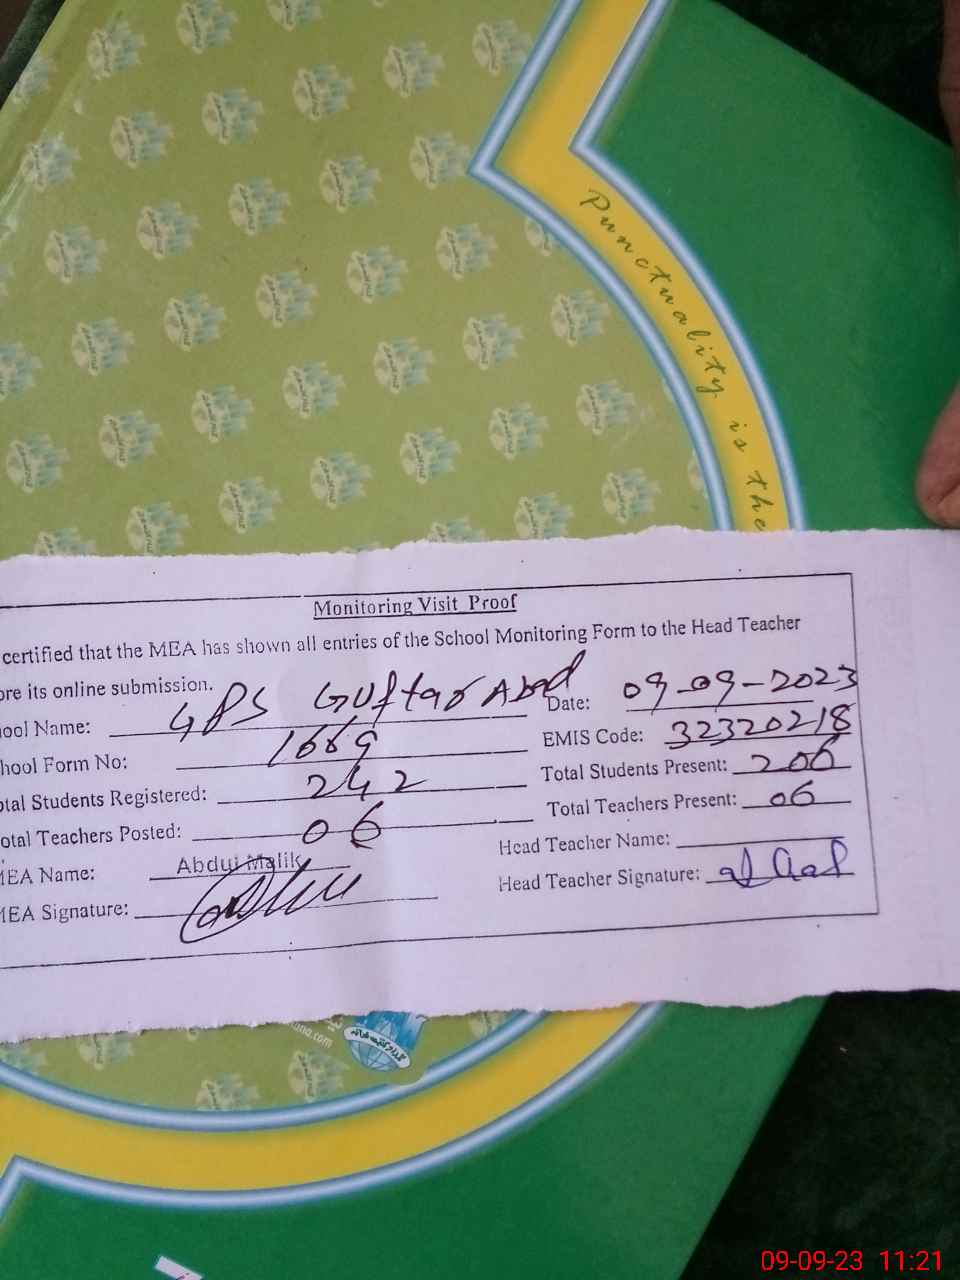 Punctuality is the
Monitoring Visit Proof
certified that the MEA has shown all entries of the School Monitoring Form to the Head Teacher
ore its online submission.
ool Name: GPS Guftar Abad Date: 09-09-2023
hool Form No: 1669 EMIS Code: 32320218
otal Students Registered: 242 Total Students Present: 206
otal Teachers Posted: 06 Total Teachers Present: 06
MEA Name: Abdul Malik Head Teacher Name:
MEA Signature: Head Teacher Signature:
09-09-23 11:21